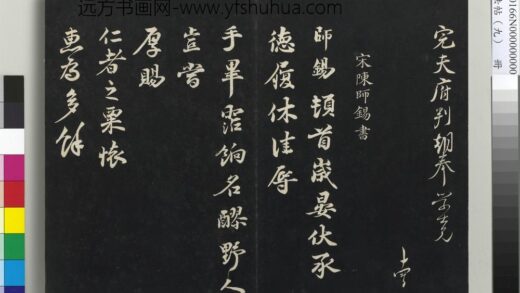 远方书画网-www.yfshuhua.com
帖（九） 册
0166N000000000
完夫府判朝奉
宋陳師錫書
師錫 頓首歲晏伏承
德履休佳辱
手畢寵餉名醪野人
豈嘗
厚賜
仁者之粟懷
惠為多餘